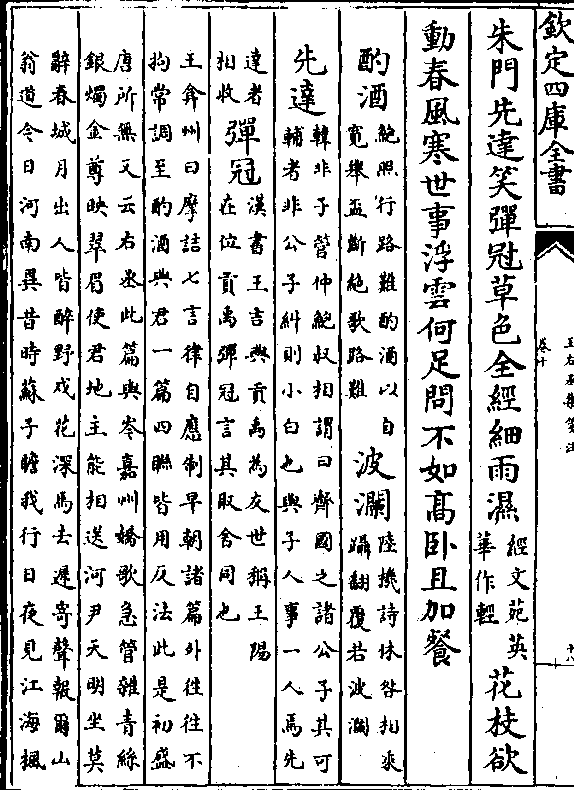 欽定四庫全書
王右丞集箋注
卷十
十八
朱門先達笑彈冠草色全經細雨濕經文苑英
華作輕花枝欲
動春風寒世事浮雲何足問不如髙卧且加餐
酌酒鮑照行路難酌酒以自
寛舉盃斷絶歌路難波瀾陸機詩休咎相乘
躡翻覆若波瀾
先達韓非子管仲鮑叔相謂曰齊國之諸公子其可
輔者非公子糾則小白也與子人事一人焉先
達者
相收彈冠漢書王吉與貢禹為友世稱王陽
在位貢禹彈冠言其取舍同也
王弇州曰摩詰七言律自應制早朝諸篇外徃徃不
拘常調至酌酒與君一篇四聯皆用仄法此是初盛
唐所無又云右丞此篇與岑嘉州嬌歌急管雜青絲
銀燭金尊映翠眉使君地主能相送河尹天明坐莫
辭春城月出人皆醉野戍花深馬去遲寄聲報爾山
翁道今日河南異昔時蘇子瞻我行日夜見江海楓